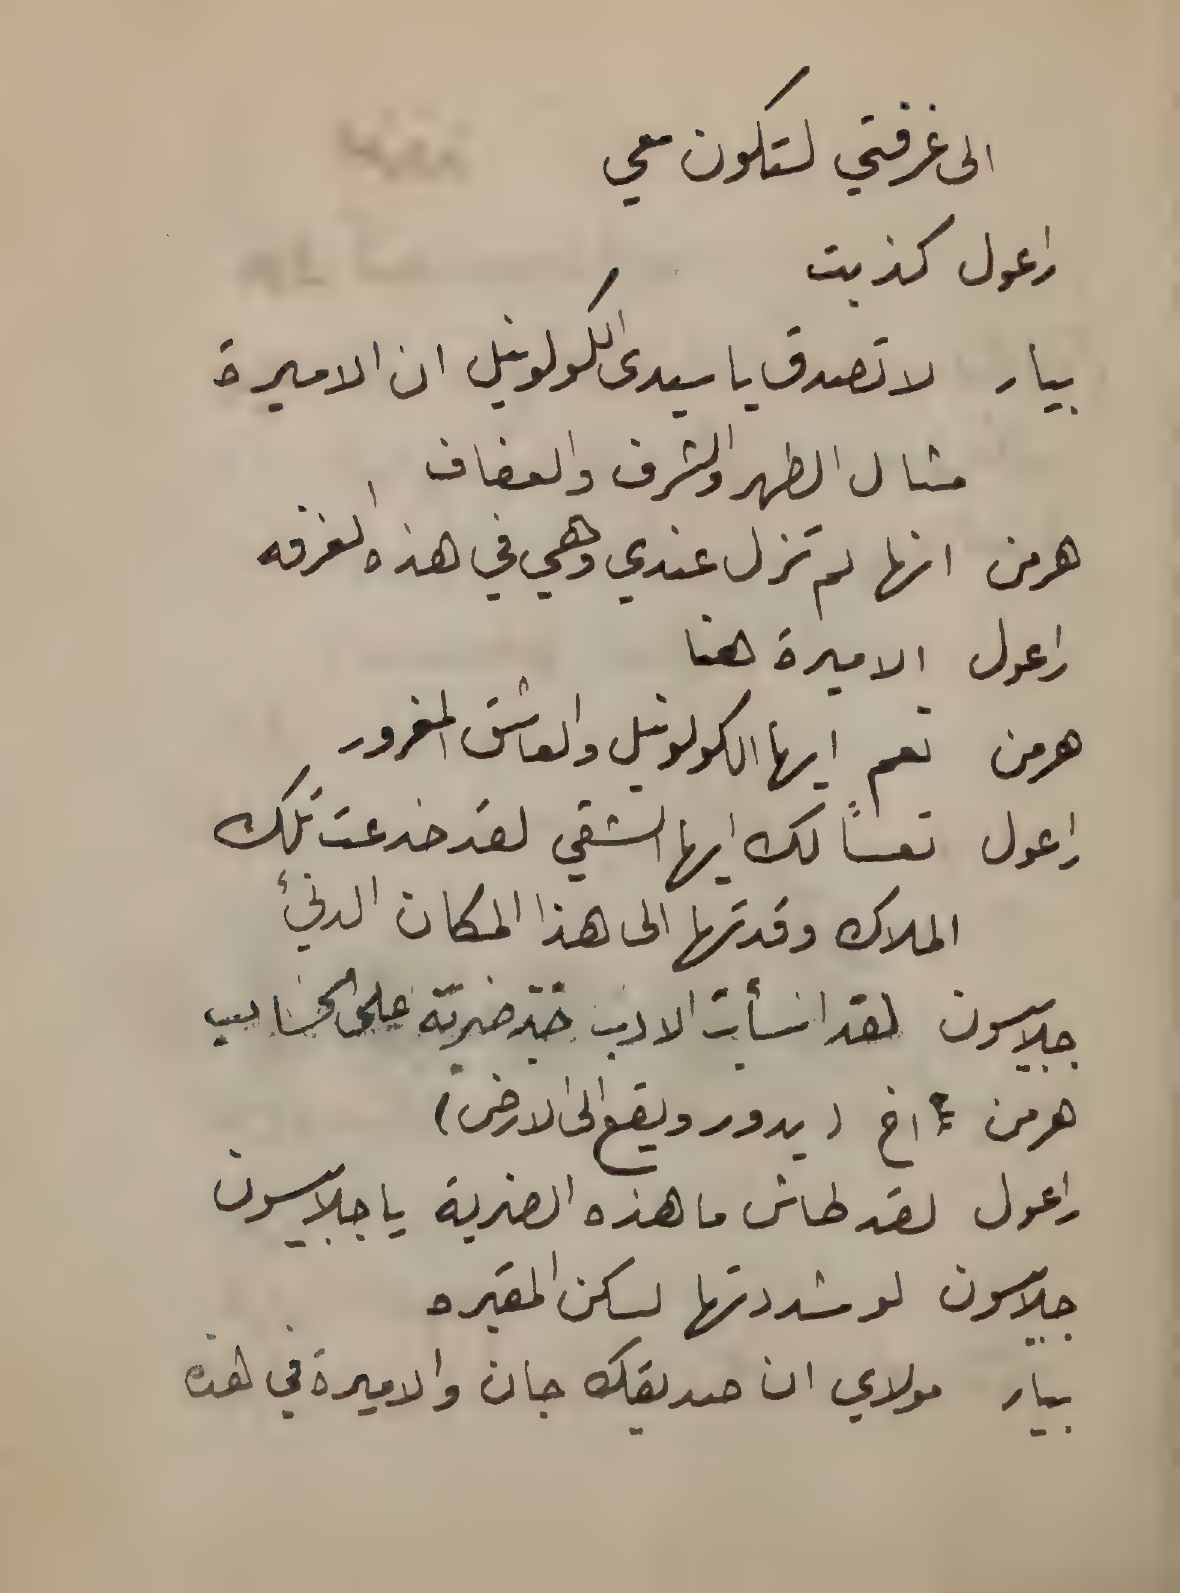 الى غرفتي لتكون معي
راعول كذبت
بيار لا تصدق يا سيدى الكولونيل ان الاميرة
مثال الطهر والشرف والعفاف
هرمن انها لم تزل عندي وهي في هذه الغرفه
راعول الاميرة هنا
هرمن نعم ايها الكولونيل والعاشق المغرور
راعول تعساً لك ايها الشقي لقد خدعت تلك
الملاك وقدتها الى هذا المكان الدنئ
جلاسون لقد اسأت الادب خذ ضربة على الحساب
هرمن اخ (يدور ويقع الى الارض)
راعول لقد طاش ما هذه الضربة يا جلاسون
جلاسون لو شددتها لسكن المقبره
بيار مولاي ان صديقك جان والاميرة في هذه